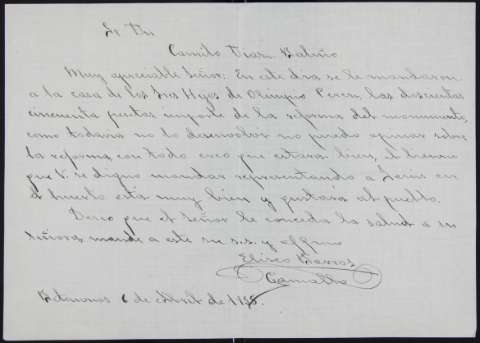 Sr Dn
Camilo Diaz Baliño
Muy apreciable Señor: En este dia se le mandaron
a la casa de los Sres Hijos de Olimpio Perez, las doscientas
cincuenta pesetas importe de la reforma del monumento,
como todavia no lo desenvolvi no puedo opinar sobre
la reforma, con todo creo que estara bien, el lienzo
que V. se digno mandar representando a Jesus en
el huerto está muy bien y gustará al pueblo.
Deseo que el señor le conceda la salud a su
señora, mande a este su s.s. y affmo
Eliseo Barros
Camaño
6 de Abril de